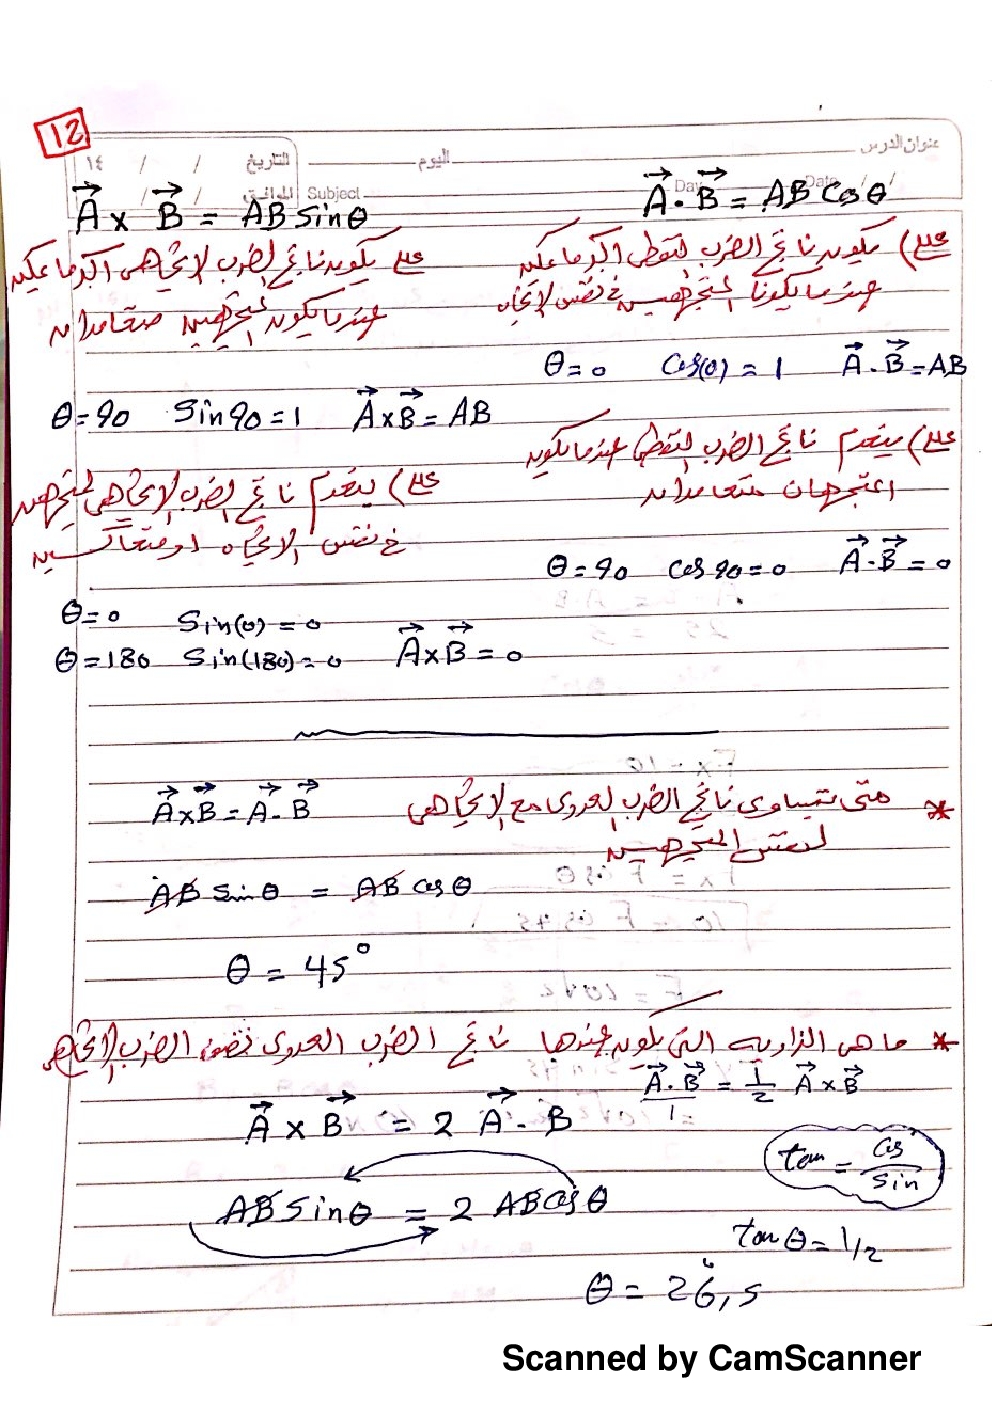 12
عنوان الدرس
اليوم
التاريخ / / ١٤
Date / /
Day
Subject
الموافق / /
A⃗ · B⃗ = AB Cosθ
علل) يكون ناتج الضرب النقطى اكبر ما يمكن
عندما يكونا المتجهين فى نفس الاتجاه
θ = 0 Cos(0) = 1 A⃗ · B⃗ = AB
علل) ينعدم ناتج الضرب النقطى عندما يكون
المتجهان متعامدان
θ = 90 Cos 90 = 0 A⃗ · B⃗ = 0
A⃗ × B⃗ = AB sinθ
علل يكون ناتج الضرب الاتجاهى اكبر ما يمكن
عندما يكون المتجهين متعامدان
θ = 90 Sin 90 = 1 A⃗ × B⃗ = AB
علل) ينعدم ناتج الضرب الاتجاهى لمتجهين
فى نفس الاتجاه او متعاكسين
θ = 0 Sin(0) = 0
θ = 180 Sin(180) = 0 A⃗ × B⃗ = 0
* متى يتساوى ناتج الضرب العددى مع الاتجاهى
لنفس المتجهين
A⃗ × B⃗ = A⃗ · B⃗
AB Sinθ = AB Cosθ
θ = 45°
* ما هى الزاويه التى يكون عندها ناتج الضرب العددى نصف الضرب الاتجاهى
A⃗ · B⃗ / 1 = 1/2 A⃗ × B⃗
A⃗ × B⃗ = 2 A⃗ · B⃗
tan = Cos / Sin
AB Sinθ = 2 AB Cosθ
tan θ = 1/2
θ = 26,5
Scanned by CamScanner